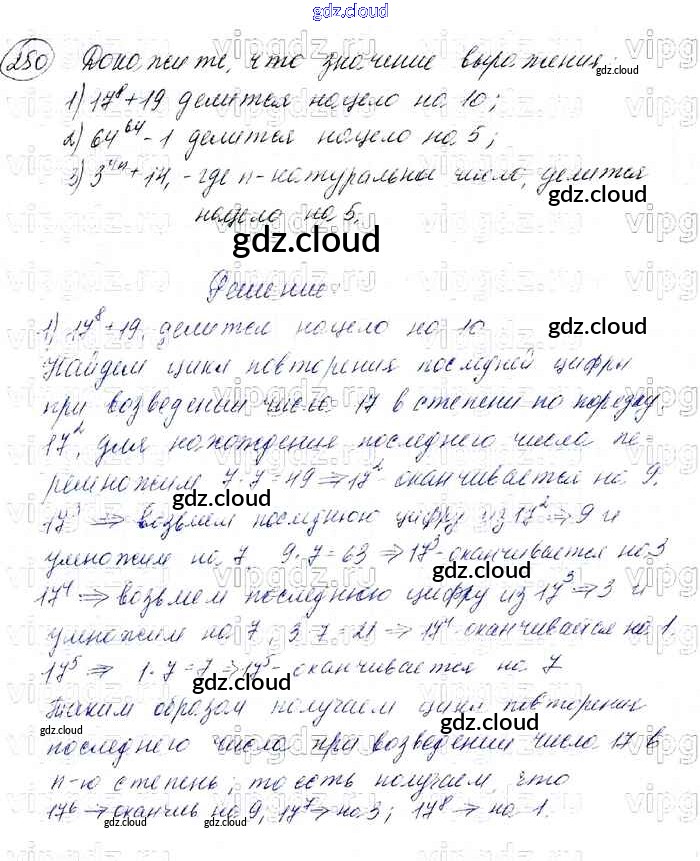 gdz.cloud
250 Докажите, что значение выражения:
1) 17⁸+19 делится нацело на 10;
2) 64⁶⁴-1 делится нацело на 5;
3) 3⁴ⁿ+14, - где n - натуральное число, делится
нацело на 5.
gdz.cloud
Решение:
1) 17⁸+19, делится нацело на 10
Найдем цикл повторения последней цифры
при возведении числа 17 в степени по порядку.
17², для нахождения последнего числа пе-
ремножим 7·7=49 ⇒ 17² - оканчивается на 9.
17³ ⇒ возьмем последнюю цифру из 17² ⇒ 9 и
умножим на 7, 9·7=63 ⇒ 17³ - оканчивается на 3
17⁴ ⇒ возьмем последнюю цифру из 17³ ⇒ 3 и
умножим на 7, 3·7=21 ⇒ 17⁴ - оканчивается на 1.
17⁵ ⇒ 1·7=7 ⇒ 17⁵ - оканчивается на 7
Таким образом получаем цикл повторения
последнего числа при возведении числа 17 в
n-ю степень, то есть получаем, что
17⁶ → оканчив на 9, 17⁷ → на 3; 17⁸ → на 1.
gdz.cloud